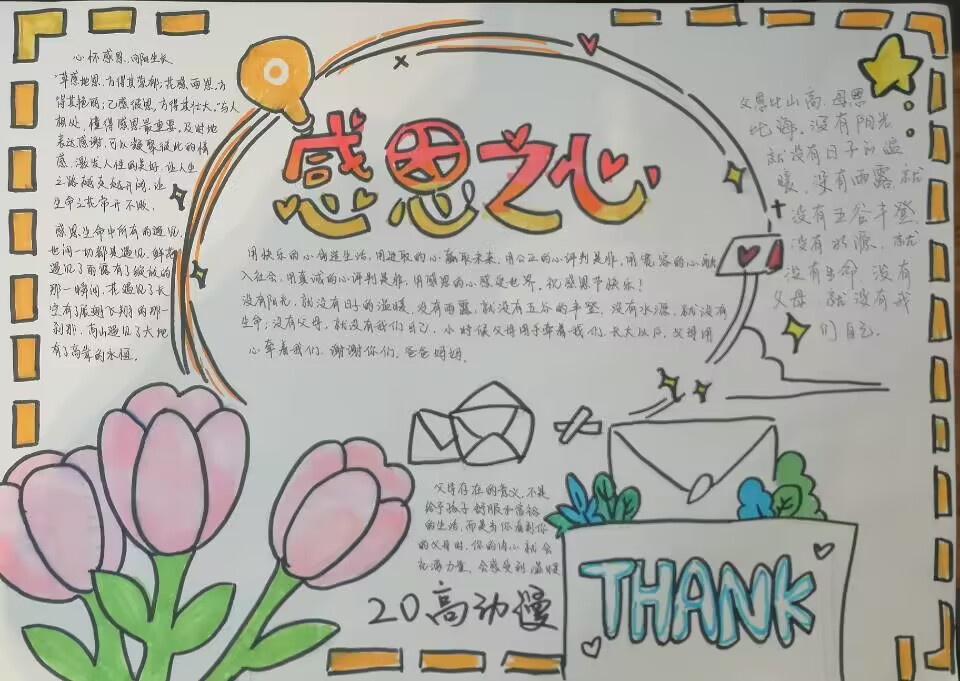 心怀感恩，向阳生长
"草感地恩，方得其郁郁；花感雨恩，方
得其艳丽；己感假恩，方得其壮大。"与人
相处，懂得感恩最重要，及时地
表达感谢，可以凝聚彼此的情
感，激发人性的美好，让人生
之路越走越开阔，让
生命之花常开不败。
感恩生命中所有的遇见，
世间一切都是遇见，鲜花
遇见了雨露有了绽放的
那一瞬间，花遇见了长
空有了展翅飞翔的那一
刹那，高山遇见了大地
有了高耸的永恒。
感恩之心
用快乐的心创造生活，用进取的心赢取未来，用公正的心评判是非，用宽容的心融
入社会，用真诚的心评判是非，用感恩的心感受世界。祝感恩节快乐！
没有阳光，就没有日子的温暖，没有雨露，就没有五谷的丰登，没有水源，就没有
生命；没有父母，就没有我们自己。小时候父母用手牵着我们，长大以后，父母用
心牵着我们，谢谢你们，爸爸妈妈。
父恩比山高，母恩
比海，没有阳光
就没有日子的温
暖，没有雨露，就
没有五谷丰登，
没有水源，就
没有生命，没有
父母，就没有我
们自己。
父母存在的意义，不是
给予孩子舒服和富裕
的生活，而是当你看到你
的父母时，你的内心就会
充满力量，会感受到温暖
20高动慢
THANK